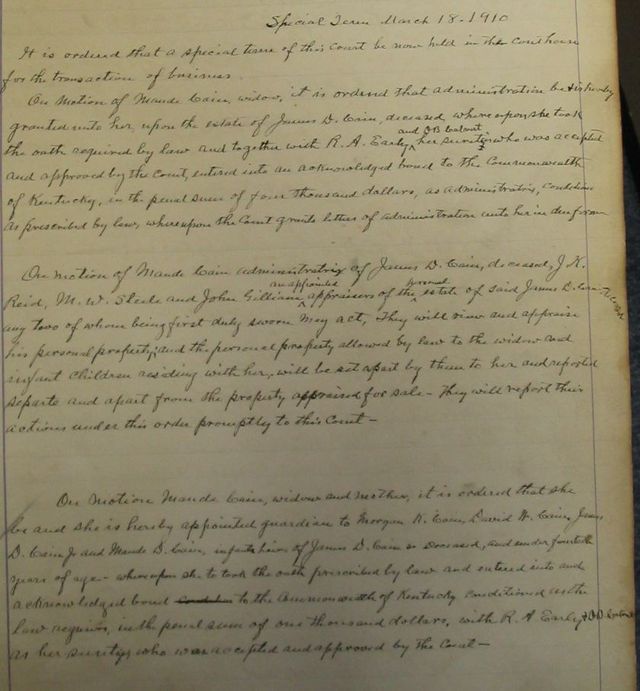 Special Term March 18-1910
It is ordered that a special term of this Court be now held in the Courthouse
for the transaction of business.
On Motion of Maude Cain, widow, it is ordered that administration be & is hereby
granted unto her, upon the estate of James D. Cain, deceased, whereupon she took
and
the oath required by law and together with R. A. Early, her sureties who was accepted
and approved by the Court, entered into an acknowledged bond to the Commonwealth
of Kentucky, in the penal sum of four thousand dollars, as administratrix, condition
as prescribed by law, whereupon the Court grants letters of administration unto her in due form
On motion of Maude Cain administratrix of James D. Cain, deceased, J. K.
an appointed personal
Reid, M. W. Steele and John Gilliam, appraisers of the estate of said James D. Cain
any two of whom being first duly sworn may act, They will view and appraise
his personal property, and the personal property allowed by law to the widow and
infant children residing with her, will be set apart by them to her and reported
separte and apart from the property appraised for sale - They will report their
actions under this order promptly to this Court -
On Motion Maude Cain, widow and mother, it is ordered that she
be and she is hereby appointed guardian to Morgan K. Cain, David W. Cain, James
D. Cain Jr and Maude D. Cain, infant heirs of James D. Cain deceased, and under fourteen
years of age - whereupon she to took the oath prescribed by law and entered into and
acknowledged bond to the Commonwealth of Kentucky conditioned as the
law requires, in the penal sum of one thousand dollars, with R. A Early &
as her suretys who was accepted and approved by the Court -